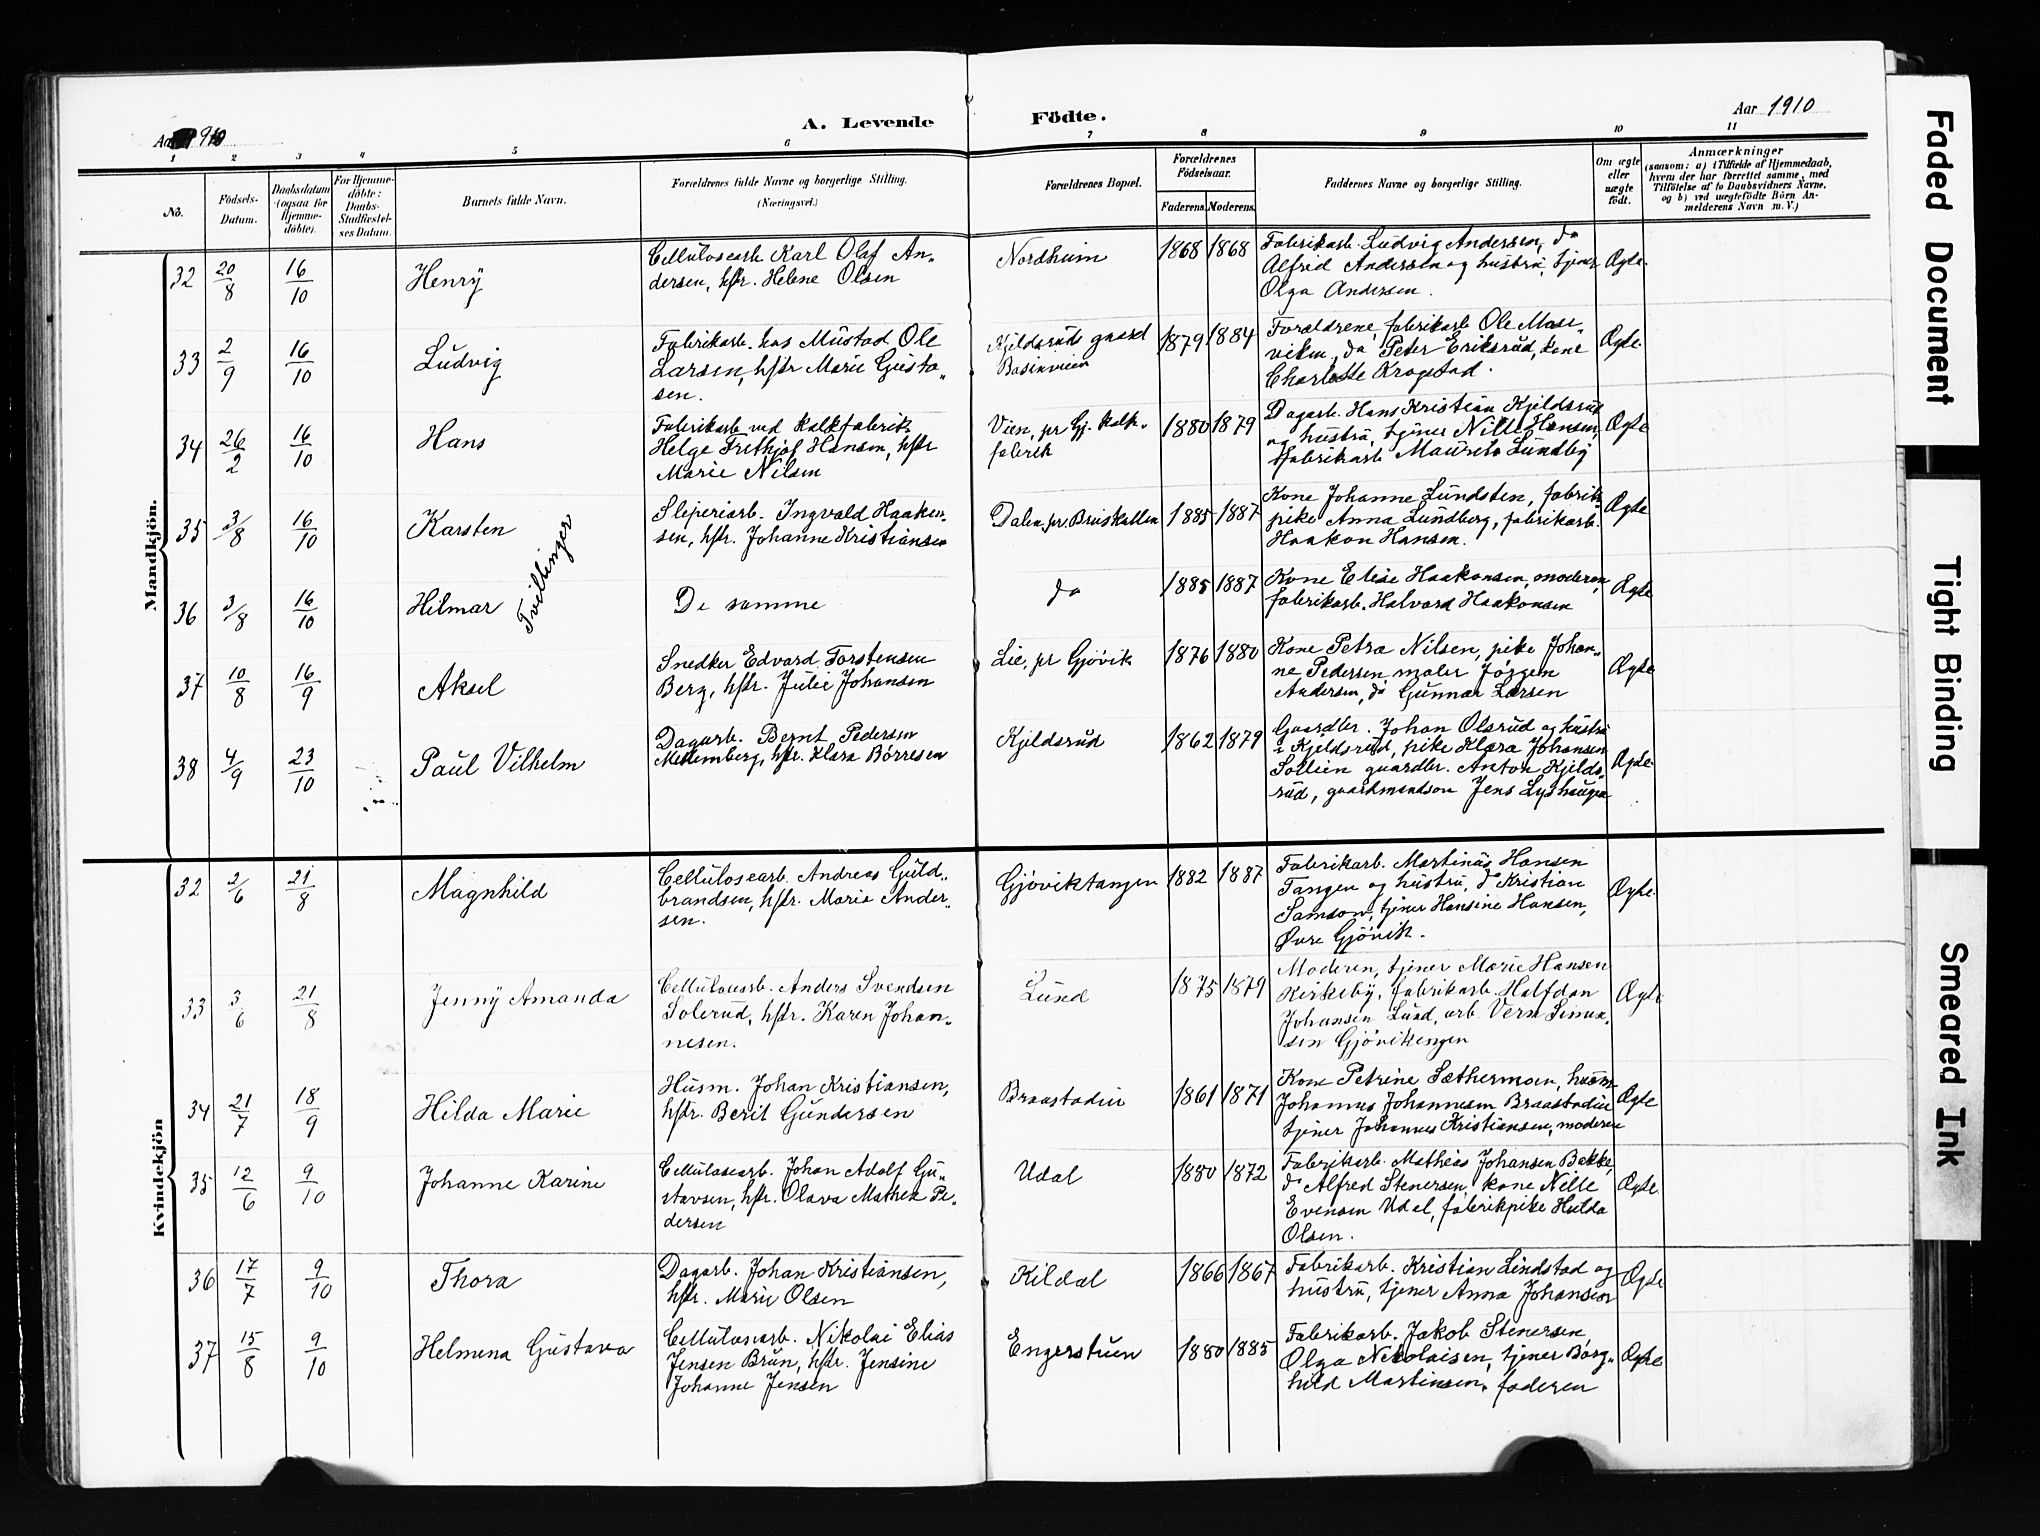 Aar 1910
A. Levende Födte.
Aar 1910
1 2 3 4 5 6 7 8 9 10 11
No.
Födsels-
Datum.
Daabsdatum
(ogsaa for
Hjemme-
döbte).
For Hjemme-
döbte:
Daabs-
Stadfæstel-
ses Datum.
Barnets fulde Navn.
Forældrenes fulde Navne og borgerlige Stilling.
(Næringsvei.)
Forældrenes Bopæl.
Forældrenes
Födselsaar.
Faderens. Moderens.
Faddernes Navne og borgerlige Stilling.
Om ægte
eller
uægte
født.
Anmærkninger
(saasom: a) i Tilfælde af Hjemmedaab,
hvem der har forrettet samme, med
Tilföielse af to Daabsvidners Navne,
og b) ved uægtefödte Börn An-
melderens Navn m. V.)
Mandkjön.
32 20/8 16/10 Henry
Cellulosearb. Karl Olaf An-
dersen, hstr. Helene Olsen
Nordheim 1868 1868
Fabrikarb. Ludvig Andersen, do
Alfred Andersen og hustru, tjener
Olga Andersen.
Ægte.
33 2/9 16/10 Ludvig
Fabrikarb. hos Mustad Ole
Larsen, hstr Marie Gusta-
sen.
Kjeldsrud gaard
1879 1884
Forældrene, fabrikarb Ole Mase-
viken, do Peter Eriksrud, kone
Charlotte Krogstad.
Ægte
34 26/2 16/10 Hans
Fabrikarb ved Kalkfabrik
Helge Frithjof Hansen, hstr
Marie Nilsen
Vien, pr Gj. kalk-
fabrik
1880 1879
Dagarb. Hans Kristian Kjeldsrud
og hustru, tjener Nille Hansen,
fabrikarb Mauritz Lundby
Ægte
35 3/8 16/10 Karsten
Tvillinger
Sliperiarb. Ingvald Haaken-
sen, hstr. Johanne Kristiansen
Dalen, pr Bruskallen 1885 1887
Kone Johanne Lundsten, fabrik-
pike Anna Lundberg, fabrikarb.
Haakon Hansen.
Ægte
36 3/8 16/10 Hilmar
De samme
do 1885 1887
Kone Elise Haakonsen, moderen,
fabrikarb. Halvard Haakonsen
Ægte
37 10/8 16/9 Aksel
Snedker Edvard Torstensen
Berg, hstr. Julie Johansen
Lie, pr Gjövik 1876 1880
Kone Petra Nilsen, pike Johan-
ne Pedersen, maler Jörgen
Andersen, do Gunnar Larsen
Ægte
38 4/9 23/10 Paul Vilhelm
Dagarb. Bernt Pedersen
Mellemberg, hstr. Klara Børresen
Kjeldsrud 1862 1879
Gaardbr. Johan Olsrud og hustru
Kjeldsrud, pike Klara Johansen
Sollien gaardbr. Anton Kjelds-
rud, gaardmandsøn Jens Lyshaugen
Ægte
Kvindekjön
32 2/6 21/8 Magnhild
Cellulosearb. Andreas Guld-
brandsen, hstr. Marie Ander-
sen.
Gjöviktangen 1882 1887
Fabrikarb. Martinus Hansen
Tangen og hustru, do Kristian
Samson, tjener Hansine Hansen,
Øvre Gjövik.
Ægte.
33 3/6 21/8 Jenny Amanda
Cellulosearb. Anders Svendsen
Solerud, hstr. Karen Johan-
nesen.
Lund 1875 1879
Moderen, tjener Marie Hansen
Kirkeby, fabrikarb. Halfdan
Johansen Lund, arb. Vern Simen-
sen Gjövikengen
Ægte
34 21/7 18/9 Hilda Marie
Husm. Johan Kristiansen,
hstr. Berit Gundersen
Braastadeie 1861 1871
Kone Petrine Sæthermoen, husm
Johannes Johannesen Braastadeie
tjener Johannes Kristiansen, moderen
Ægte
35 12/6 9/10 Johanne Karine
Cellulosearb. Johan Adolf Gu-
stavsen, hstr. Olava Mathea Pe-
dersen
Udal 1880 1872
Fabrikarb. Mathias Johansen Bakke,
do Alfred Stenersen, kone Nille
Evensen Udal, fabrikpike Hulda
Olsen.
Ægte
36 17/7 9/10 Thora
Dagarb. Johan Kristiansen,
hstr. Marie Olsen
Kildal 1866 1867
Fabrikarb. Kristian Lindstad og
hustru, tjener Anna Johansen
Ægte
37 15/8 9/10 Helmina Gustava
Cellulosearb. Nikolai Elias
Jensen Brun, hstr. Jensine
Johanne Jensen
Engerstuen 1880 1885
Fabrikarb. Jakob Stenersen,
Olga Nikolaisen, tjener Borg-
hild Martinsen, faderen
Ægte
Faded Document
Tight Binding
Smeared Ink